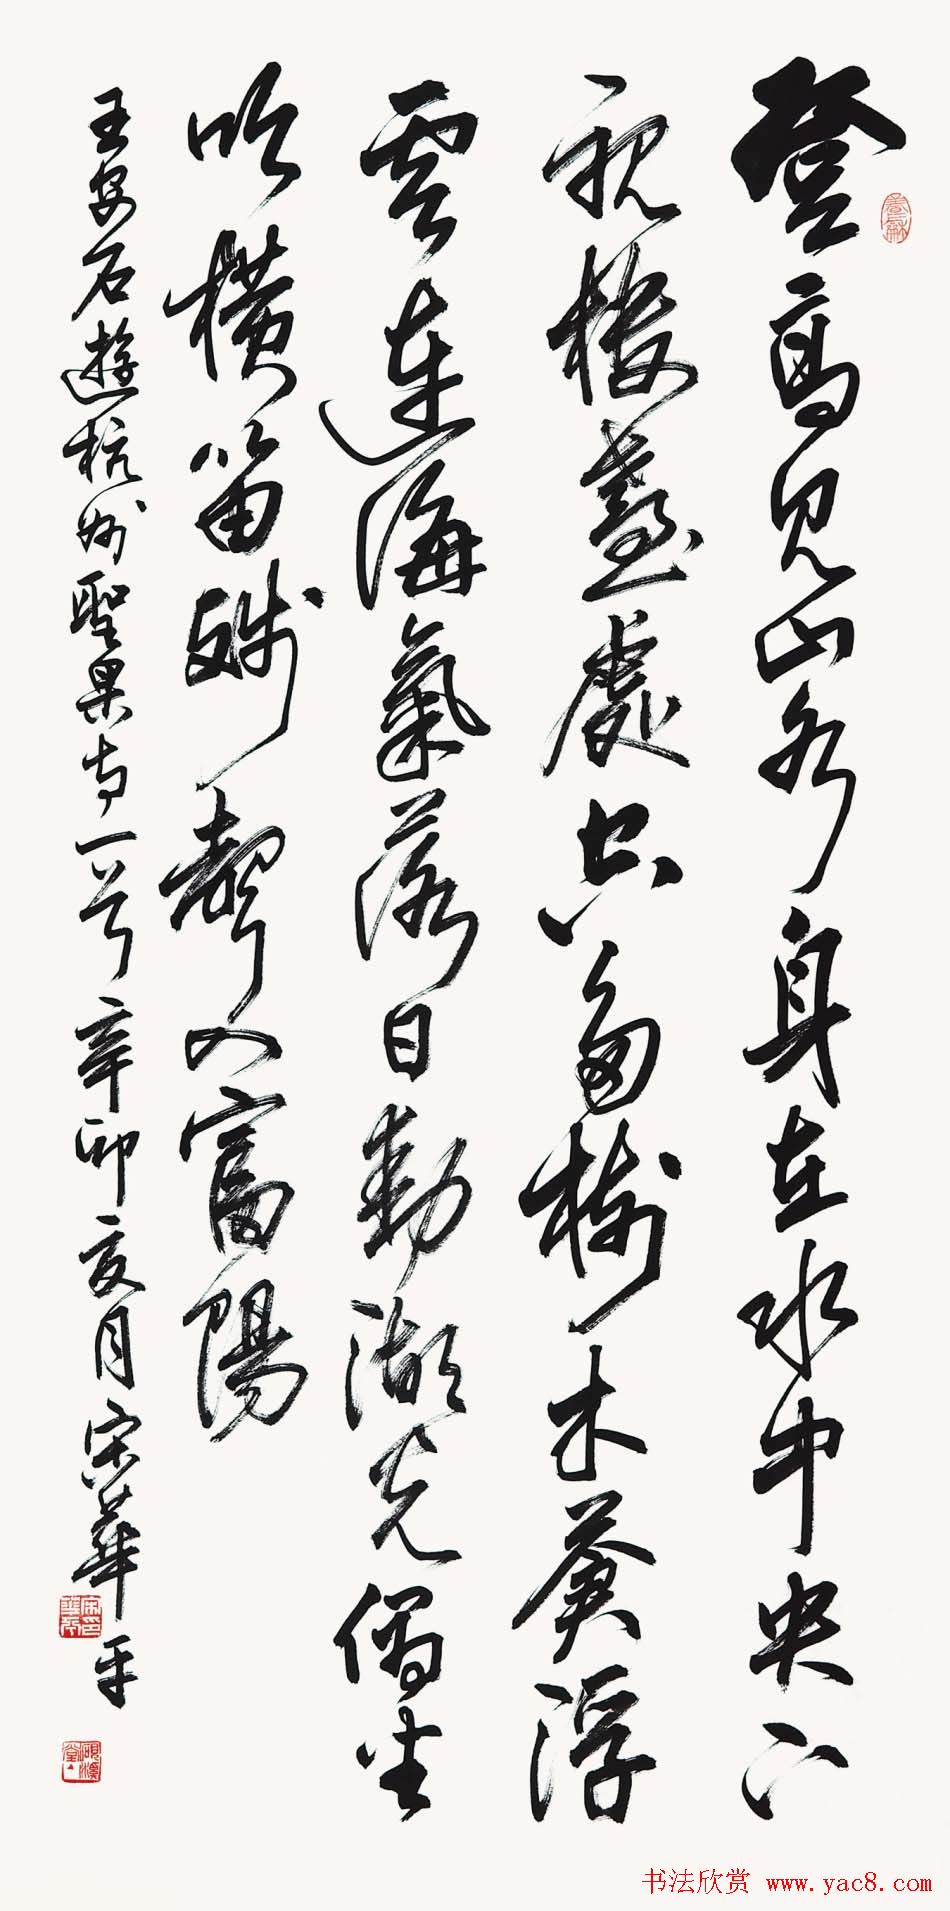 登高見山水身在水中央下
視樓臺處空多樹木蒼浮
雲連海氣落日動湖光偶坐
吹橫笛殘聲入富陽
王安石遊杭州聖果寺一首辛卯亥月宋華平
书法欣赏 www.yac8.com